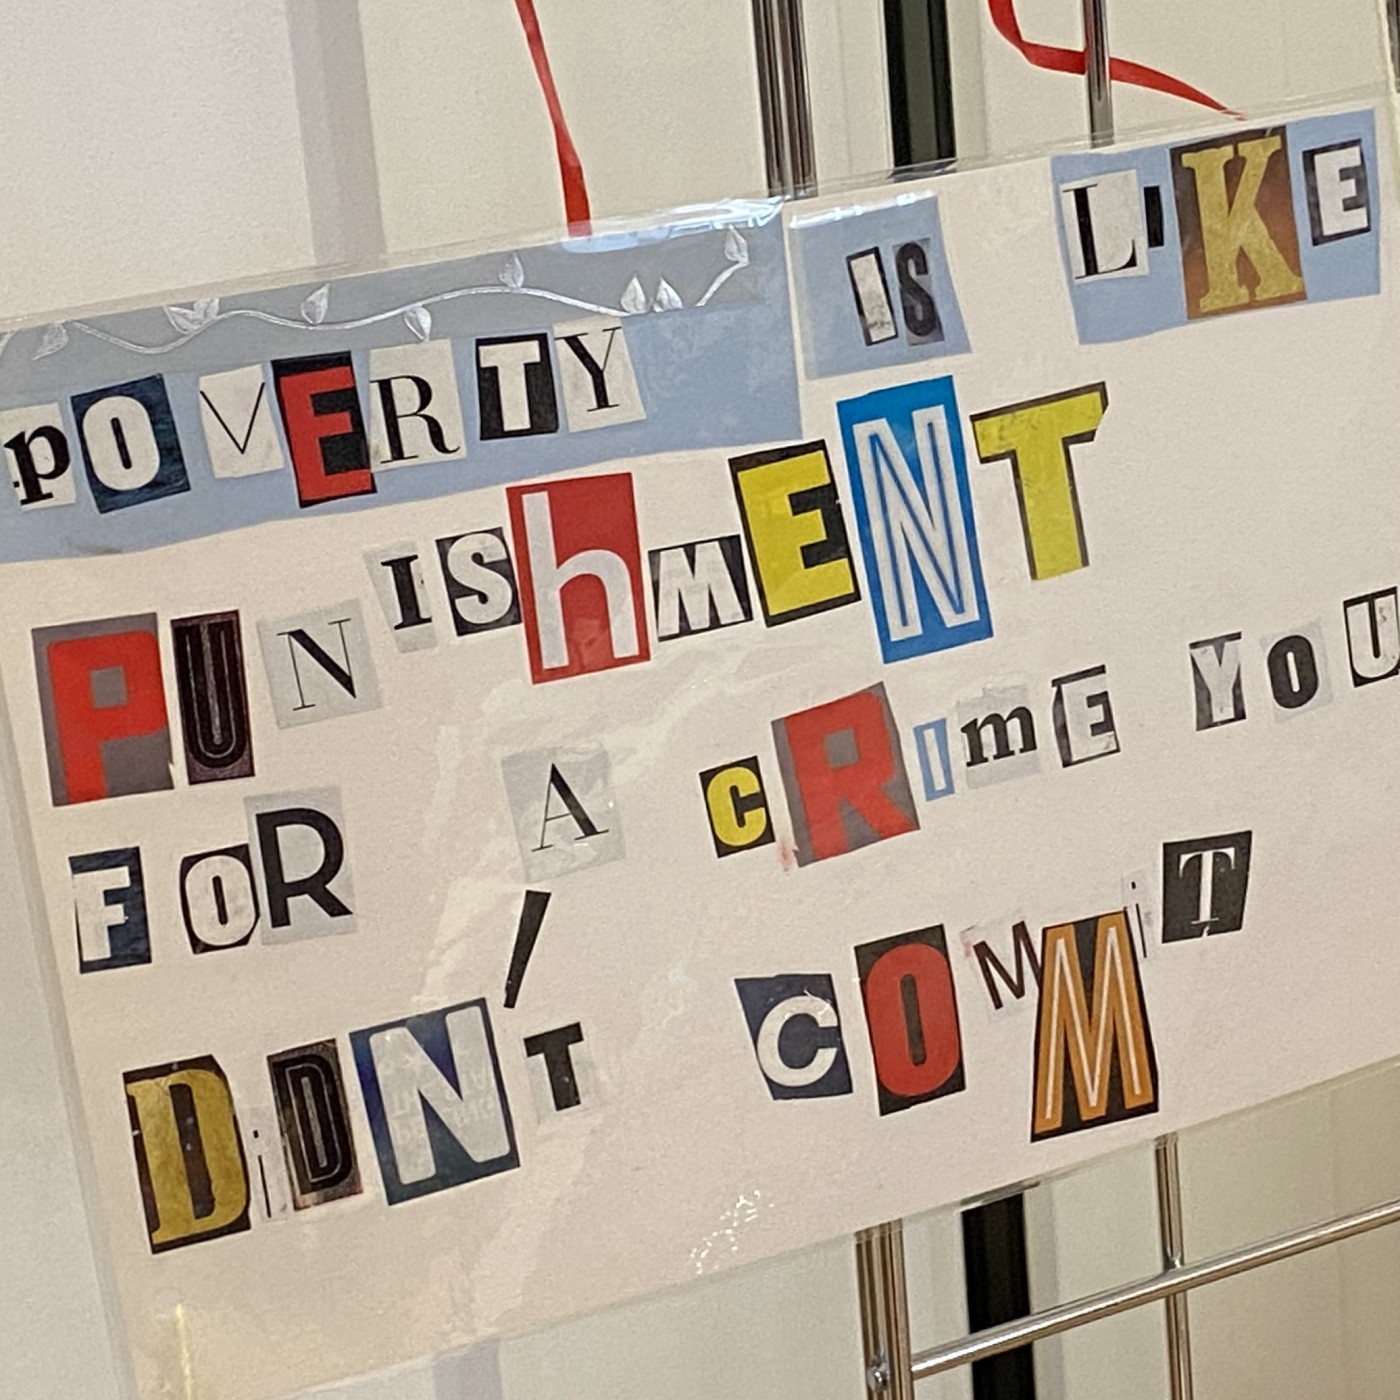 pOVERTY IS LIKE
PUNIShMENT
FOR A CRImE YOU
DiDN'T COMMiT